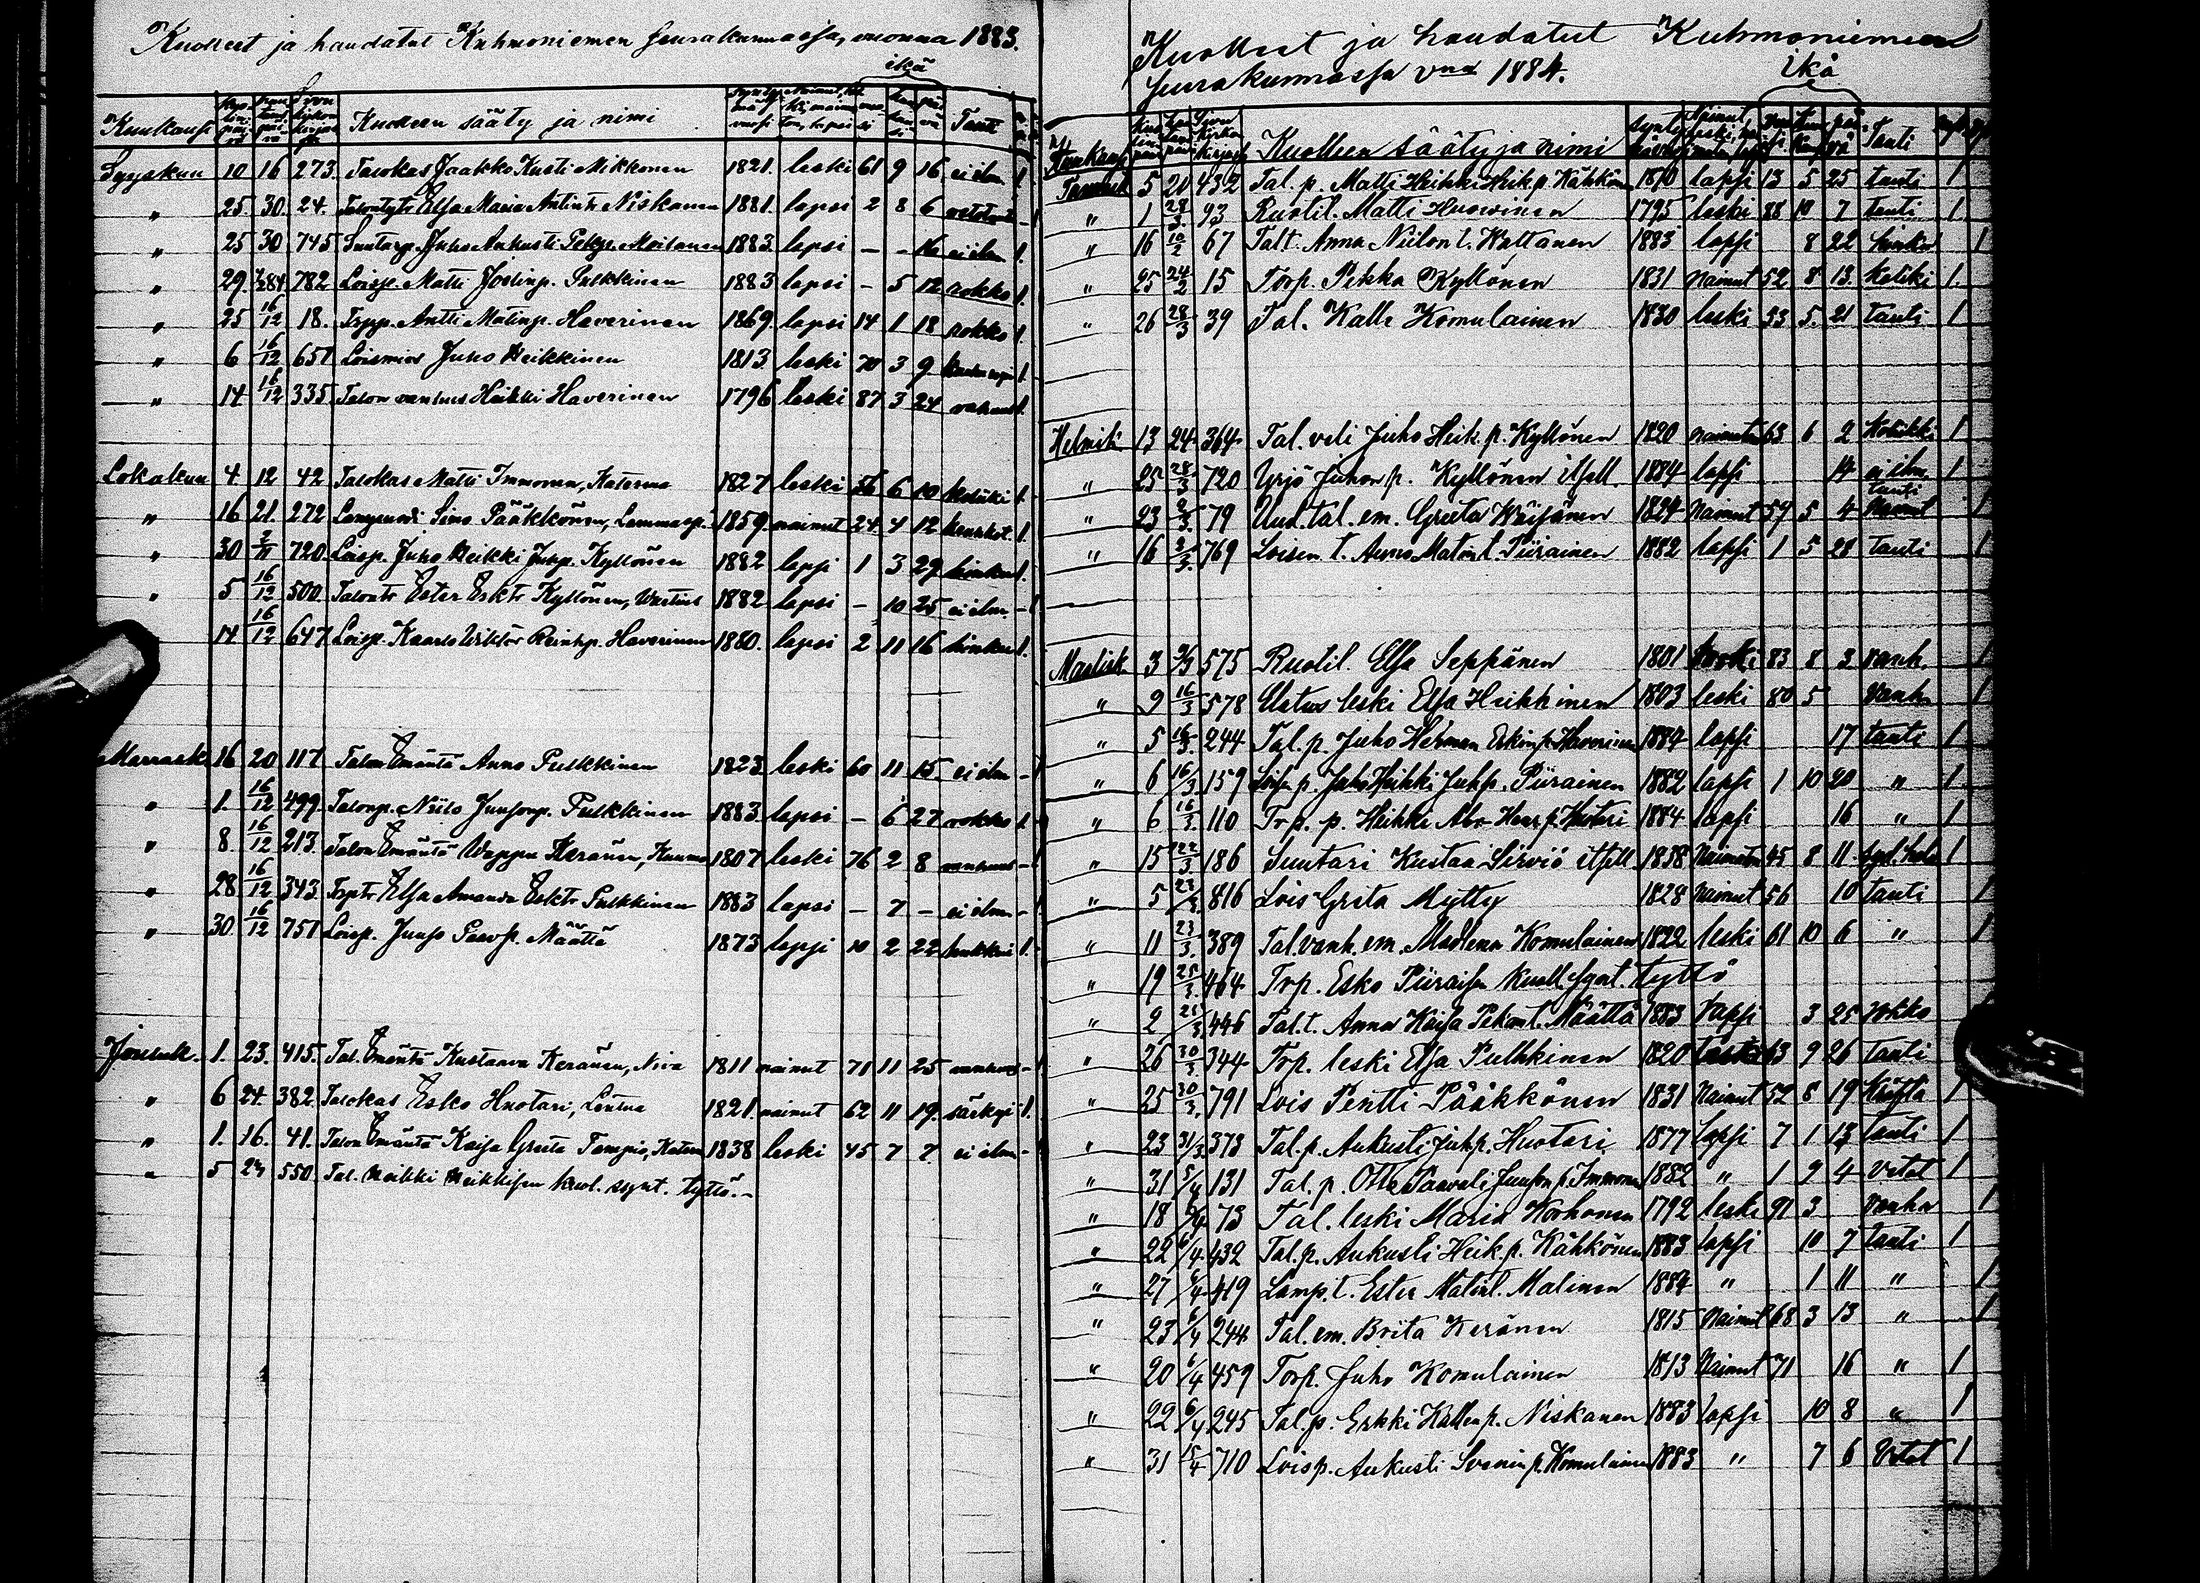 Kuolleet ja haudatut Kuhmoniemen seurakunnassa, vuonna 1883.
ikä
Kuukausi Kuolleen sääty ja nimi Tauti
Syyskuu 10 16 273. Talokas Jaakko Kusti Mikkonen 1821. leski 61 9 16 ei ilm. 1.
" 25. 30. 24. Talontytr Elsa Maria Antintr Niskanen 1881. lapsi 2 8 6
" 25 30 745 Juho Aukusti Pekp. Moilanen 1883. lapsi - - 16 ei ilm 1.
" 29. 782 Loisp. Matti Pulkkinen 1883 lapsi - 5 12 rokko 1.
" 25 16/12 18. Trpp. Antti Matinp. Haverinen 1869. lapsi 14 1 18 rokko 1.
" 6 16/12 651 Loismies Juho Heikkinen 1813. leski 70 3 9 1.
" 14 16/12 335 Talon vanhus Heikki Haverinen 1796 leski 87 3 24 vanhuus 1.
Lokakuu 4 12 42 Talokas Matti Immonen, Katerma 1827 leski 56 6 10 1.
" 16 21. 272 Simo Pääkkönen, Lammasp. 1859. nainut 24. 4 12 1.
" 30 2/11 720. Loisp. Juho Heikki Juhp. Kyllönen 1882 lapsi 1 3 29 hinku 1.
" 5 16/12 500. Talontr Ester Esktr Kyllönen, 1882 lapsi - 10 25 ei ilm. - 1
14 16/12 647 Loisp. Kaarlo Wiktor Reinhp. Haverinen 1880. lapsi 2 11 16 hinku 1.
Marrask. 16 20 117 Talon Emäntä Anna Pulkkinen 1823 leski 60 11 15 ei ilm - 1
" 1. 16/12 499. Talonp. Niilo Juusonp. Pulkkinen 1883 lapsi - 6 27 rokko 1
" 8. 16/12 213. Talon Emäntä Wappu Keränen, 1807 leski 76 2 8 vanhuus - 1
" 28 16/12 343 Trptr Elsa Amanda Esktr Pulkkinen 1883 lapsi - 7 - ei ilm - 1
" 30 16/12 751 Loisp. Juuso Paavop. Määttä 1873 lapsi 10 2 22 1.
Jouluk. 1. 23. 415. Tal. Emäntä Kustaava Keränen, Niva 1811 nainut 71 11 25 vanhuus - 1
" 6 24. 382. Talokas Esko Huotari, Lentua 1821. nainut 62 11 19. särkyi 1.
" 1. 16. 41. Talon Emäntä Kaisa Greta Tampio, Katerm 1838 leski 45 7 7. ei ilm -
" 5 23 550. Tal. Heikki Heikkisen kuol. synt. tyttö. -
Kuolleet ja haudatut Kuhmoniemen
seurakunnassa vna 1884.
ikä
Kuukausi Kuolleen sääty ja nimi Tauti
Tammik 5 20 432 Tal. p. Matti Heikki Heik. p Kähkön 1870 lapsi 13 5 25 tauti 1
" 1 28/3. 93 Ruotil. Matti Huowinen 1795 leski 88 10 7 tauti 1.
" 16 10/2 67 Tal t. Anna Niilon t. Wattanen 1883 lapsi 8 22 hinku 1
" 25 24/2 15 Torp. Pekka Kyllönen 1831 Nainut 52 8 13. 1.
" 26 28/3 39 Tal. Kalle Komulainen 1830 leski 53 5. 21 tauti 1
Helmik 13 24. 364 Tal. veli Juho Heik. p. Kyllönen 1820 naimatoin 63 6 2
" 25 28/3 720 Yrjö Juhon p. Kyllönen itsell. 1884 lapsi 14 ei ilm. 1
" 23 2/3. 79 Uud. tal. em. Greeta Wäisänen 1824 Nainut 59 5 4 tauti 1
" 16 2/3. 769 Loisen t. Anna Matin t. Piirainen 1882 lapsi 1 5 28 tauti 1
Maalisk 3 575 Ruotil. Elsa Seppänen 1801 leski 83 8 3 vanh. 1
" 9 16/3 578 leski Elsa Heikkinen 1803 leski 80 5 Vanh 1
" 5 16/3. 244 Tal. p. Juho Herman Erkinp. Haverinen 1884 lapsi 17 tauti 1
" 6 16/3 159 Loisp. Juho Heikki Juhp. Piirainen 1882 lapsi 1 10 20 " 1
" 6 16/3. 110 Trp. p. Heikki Abr. Henr. p. Huotari 1884 lapsi 16 " 1
" 15 22/3 186 Suutari Kustaa Sirviö itsell 1838 Naimatoin 45 8 11 1
" 5 23/3. 816 Lois Greta Mytty 1828 Nainut 56 10 tauti 1
" 11 23/3. 389 Tal. vanh. em. Madlena Komulainen 1822 leski 61 10 6 " 1
" 19 25/3. 464 Trp. Esko Piiraisen kuoll. synt. tyttö
" 2 25/3 446 Tal. t. Anna Kaisa Pekan t. Määttä 1883 lapsi 3 25 rokko
" 26 30/3. 344 Trp. leski Elsa Pulkkinen 1820 leski 63 9 26 tauti
" 25 30/3. 791 Lois Pentti Pääkkönen 1831 Nainut 52 8 19 1
" 23 31/3. 373 Tal. p. Aukusti Juhp. Huotari 1877 lapsi 7 1 13 tauti 1
" 31 5/4 131 Tal. p. Otto Taavetti Juuson p. Immonen 1882 " 1 9 4 vetot 1
" 18 6/4 73 Tal. leski Maria Korhonen 1792 leski 91 3 vanha 1
" 22 6/4 432 Tal. p. Aukusti Heik. p. Kähkönen 1883 lapsi 10 7 tauti 1
" 27 6/4 419 Lamp. t. Ester Matint. Malinen 1884 " 1 11 " 1
" 23 6/4 244 Tal. em. Brita Keränen 1815 Nainut 68 3 13 " 1
" 20 6/4 459 Torp. Juho Komulainen 1813 Nainut 71 16 " 1
" 22 6/4 245 Tal. p. Erkki Kallen p. Niskanen 1883 lapsi 10 8 " 1
" 31 15/4 710 Lois p. Aukusti p. Komulainen 1883 " 7 6 Vetot 1